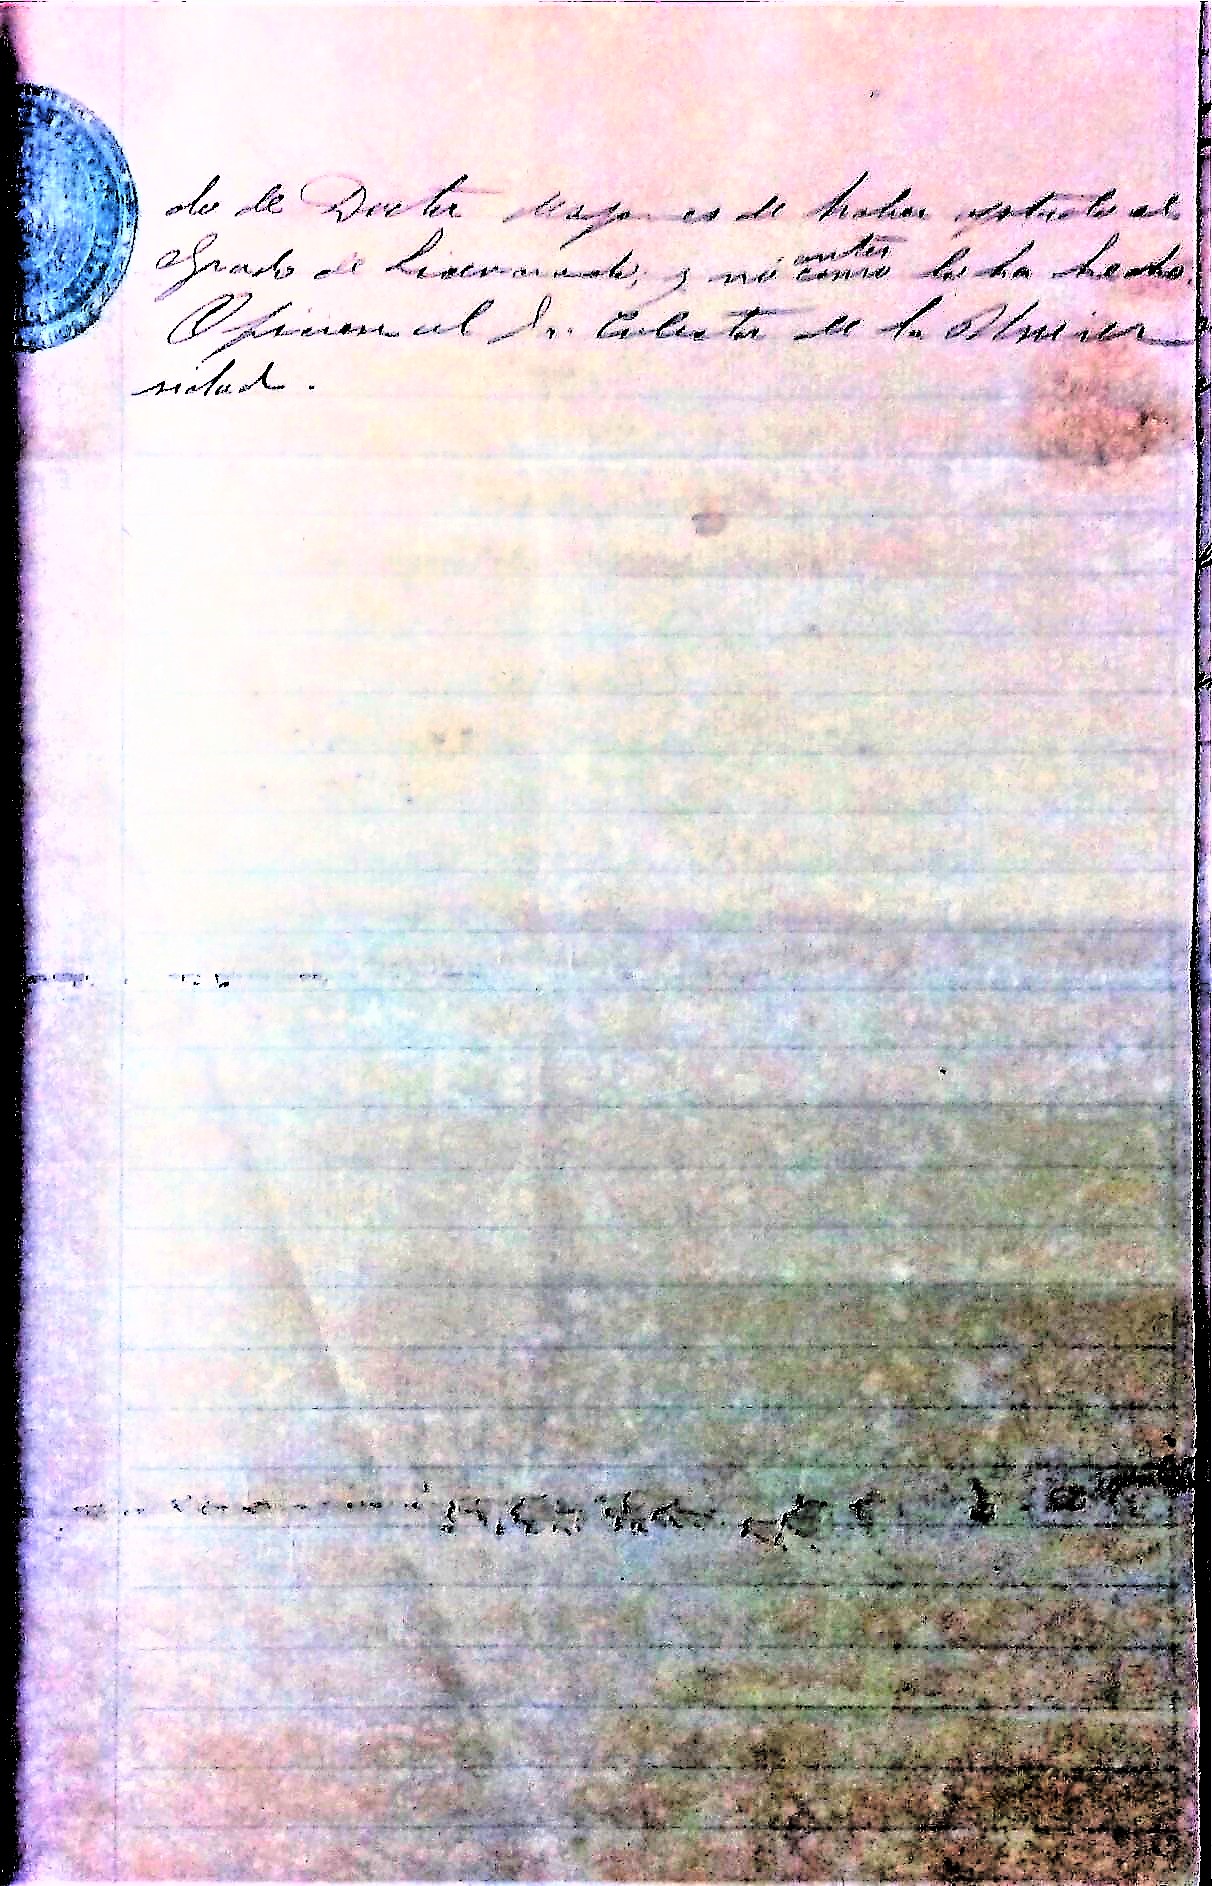 do de Doctor despues de haber optado al
Grado de Licenciado, y no antes como lo ha hecho.
Oficiese al Sr. Colector de la Univer
sidad.